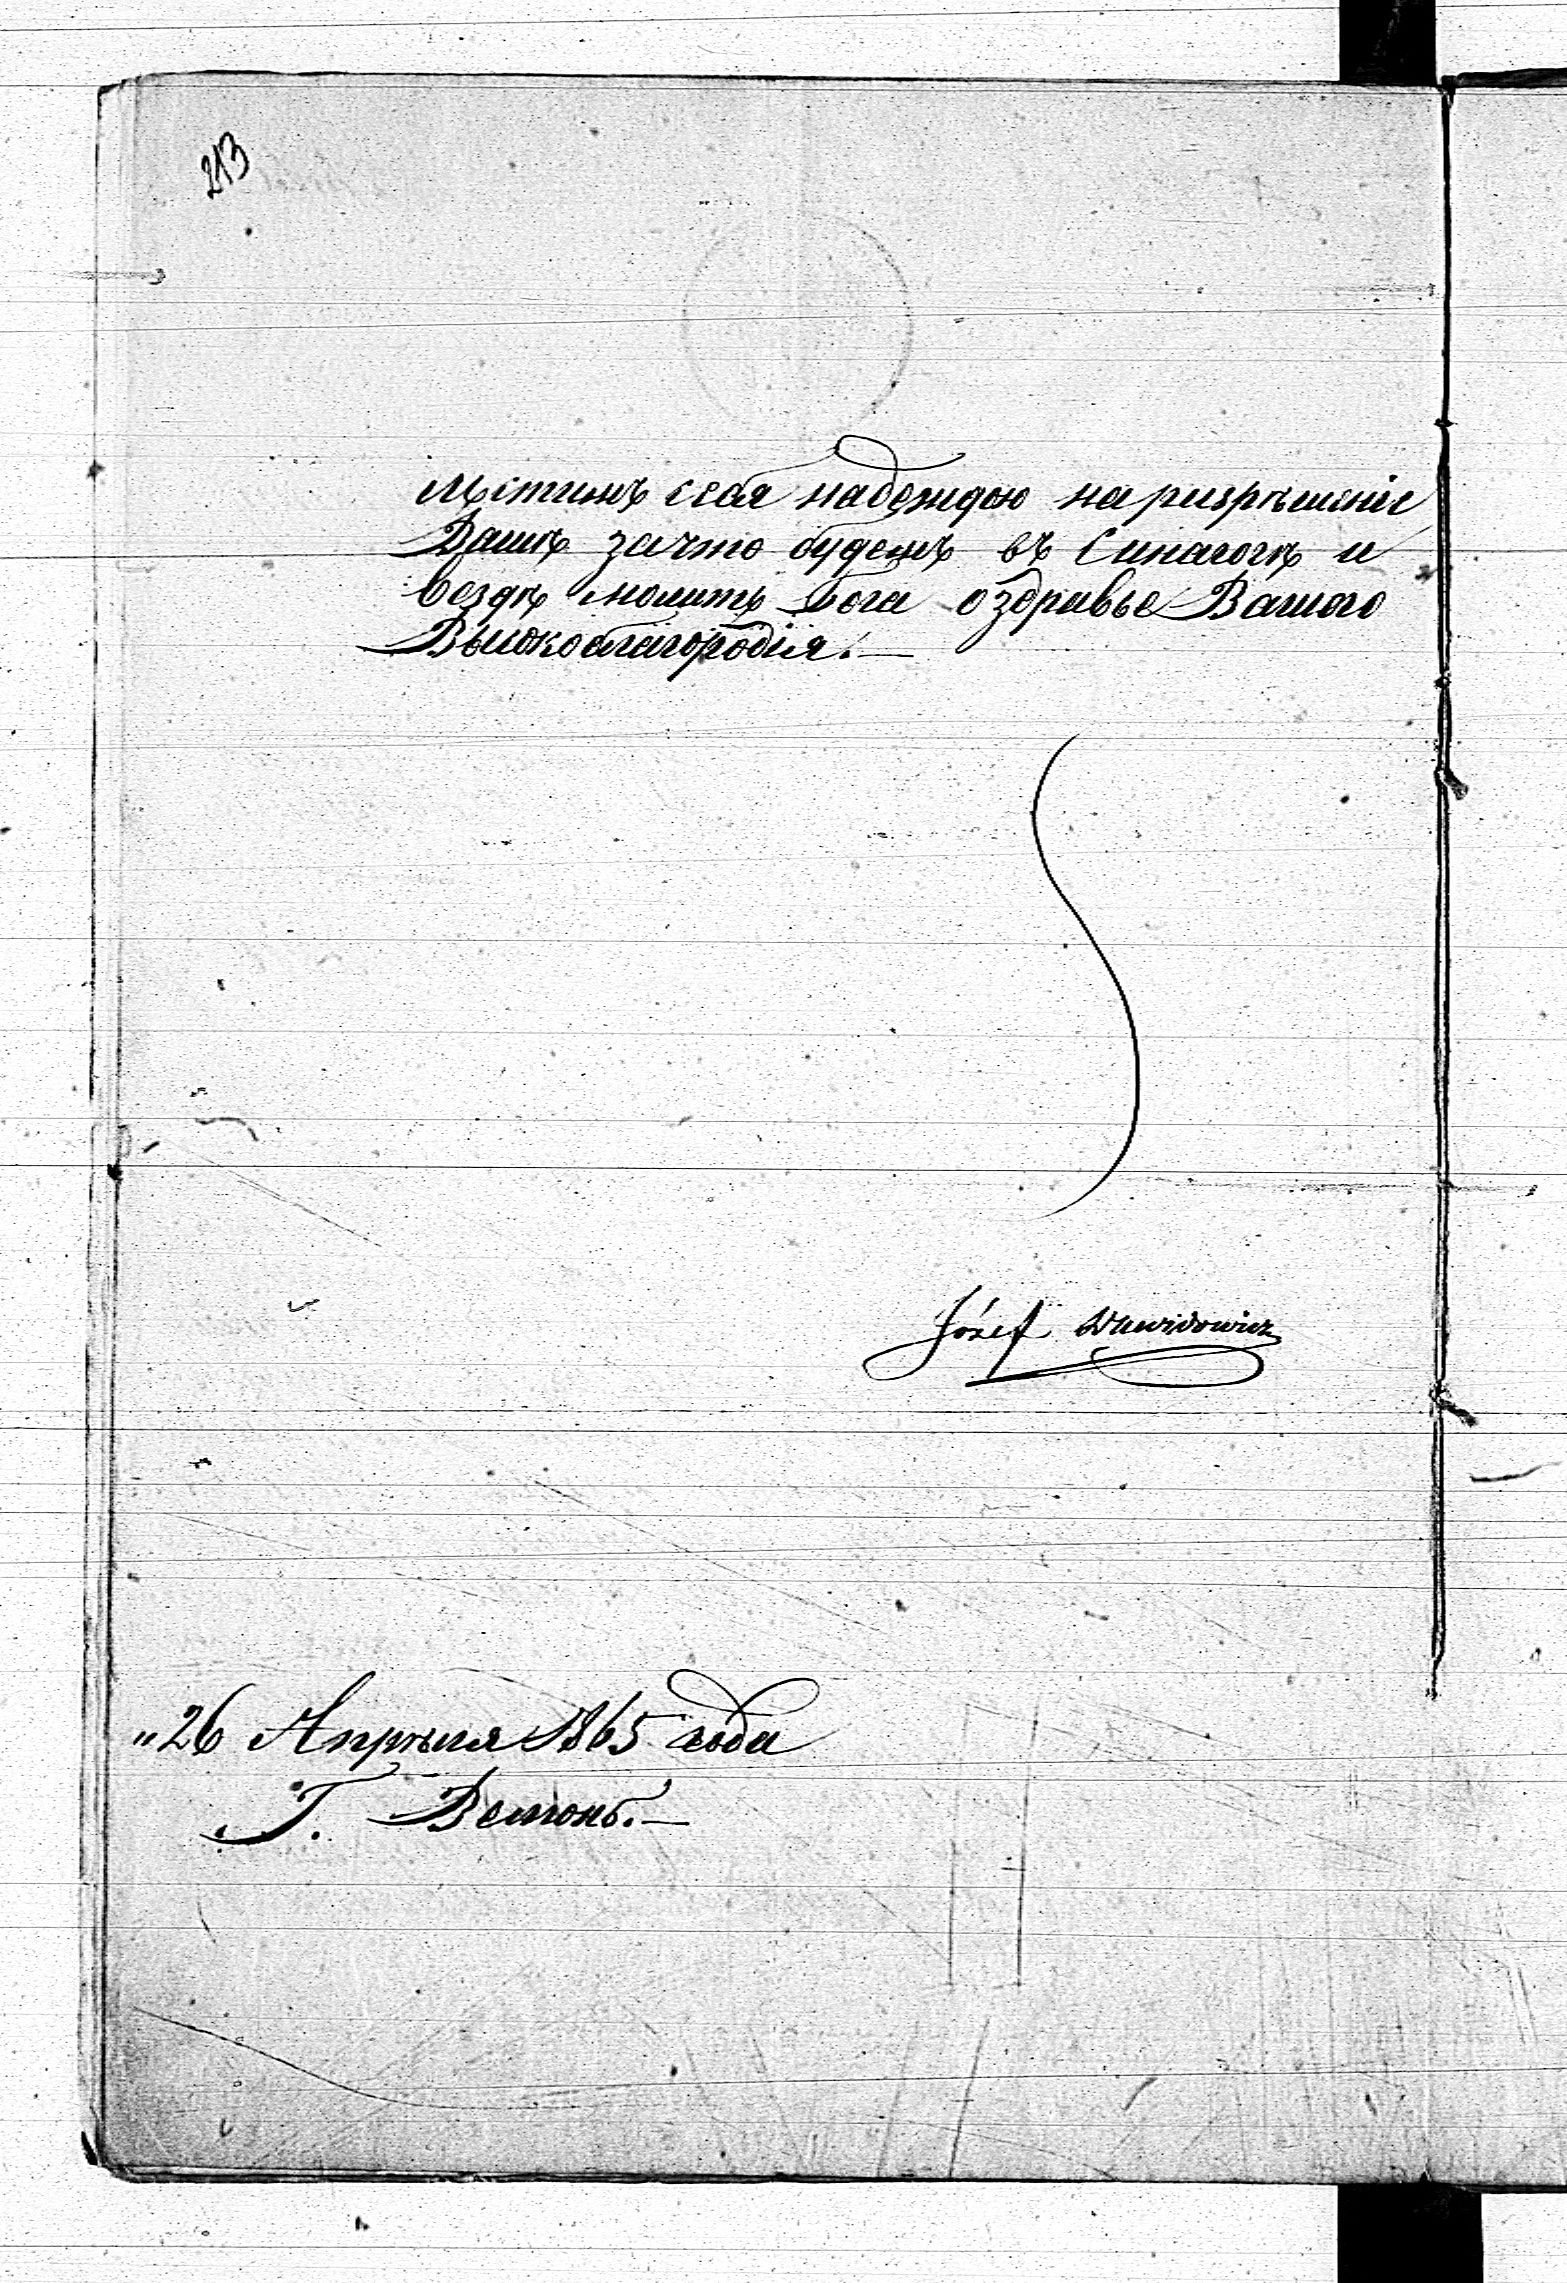 213
Льстимъ себя надеждою на разрѣшеніе
Ваше зачто будемъ въ Синагогѣ и
вездѣ молить Бога о здравье Вашого
Высокоблагородія.—
Józef Dawidowicz
"26 Апрѣля 1865 года
Г.